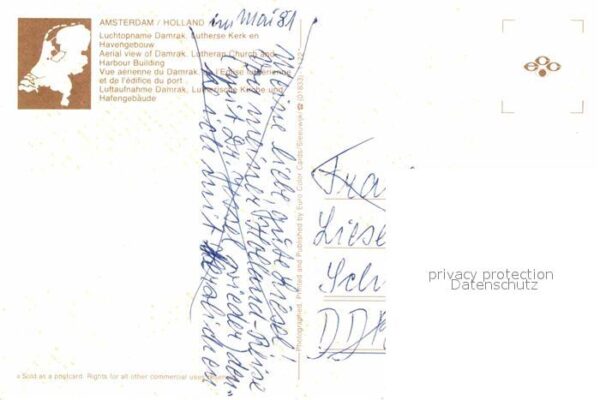 AMSTERDAM / HOLLAND
Luchtopname Damrak, Lutherse Kerk en
Havengebouw
Aerial view of Damrak, Lutheran Church and
Harbour Building
Vue aérienne du Damrak, l'Eglise luthérienne
et de l'édifice du port
Luftaufnahme Damrak, Lutherische Kirche und
Hafengebäude
im Mai 81
Meine liebe gute Liesel!
Von meiner Holland-Reise
(mit Dr. wieder) den-
ke ich mit herzlichen
Photographed, Printed and Published by Euro Color Cards/Sleeuwijk (01833)
Fra
Liese
Sch
DDR
privacy protection
Datenschutz
Sold as a postcard. Rights for all other commercial uses